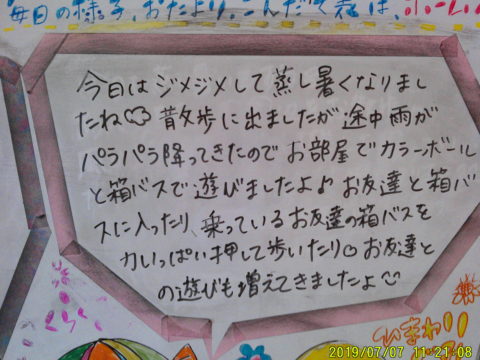 毎日の様子、おたより、こんだて表は、ホーム
今日はジメジメして蒸し暑くなりまし
たね 散歩に出ましたが途中雨が
パラパラ降ってきたのでお部屋でカラーボール
と箱バスで遊びましたよ♪お友達と箱バ
スに入ったり、乗っているお友達の箱バスを
力いっぱい押して歩いたり♡お友達と
の遊びも増えてきましたよ
さくら
ひまわり
2019/07/07 11:21:08